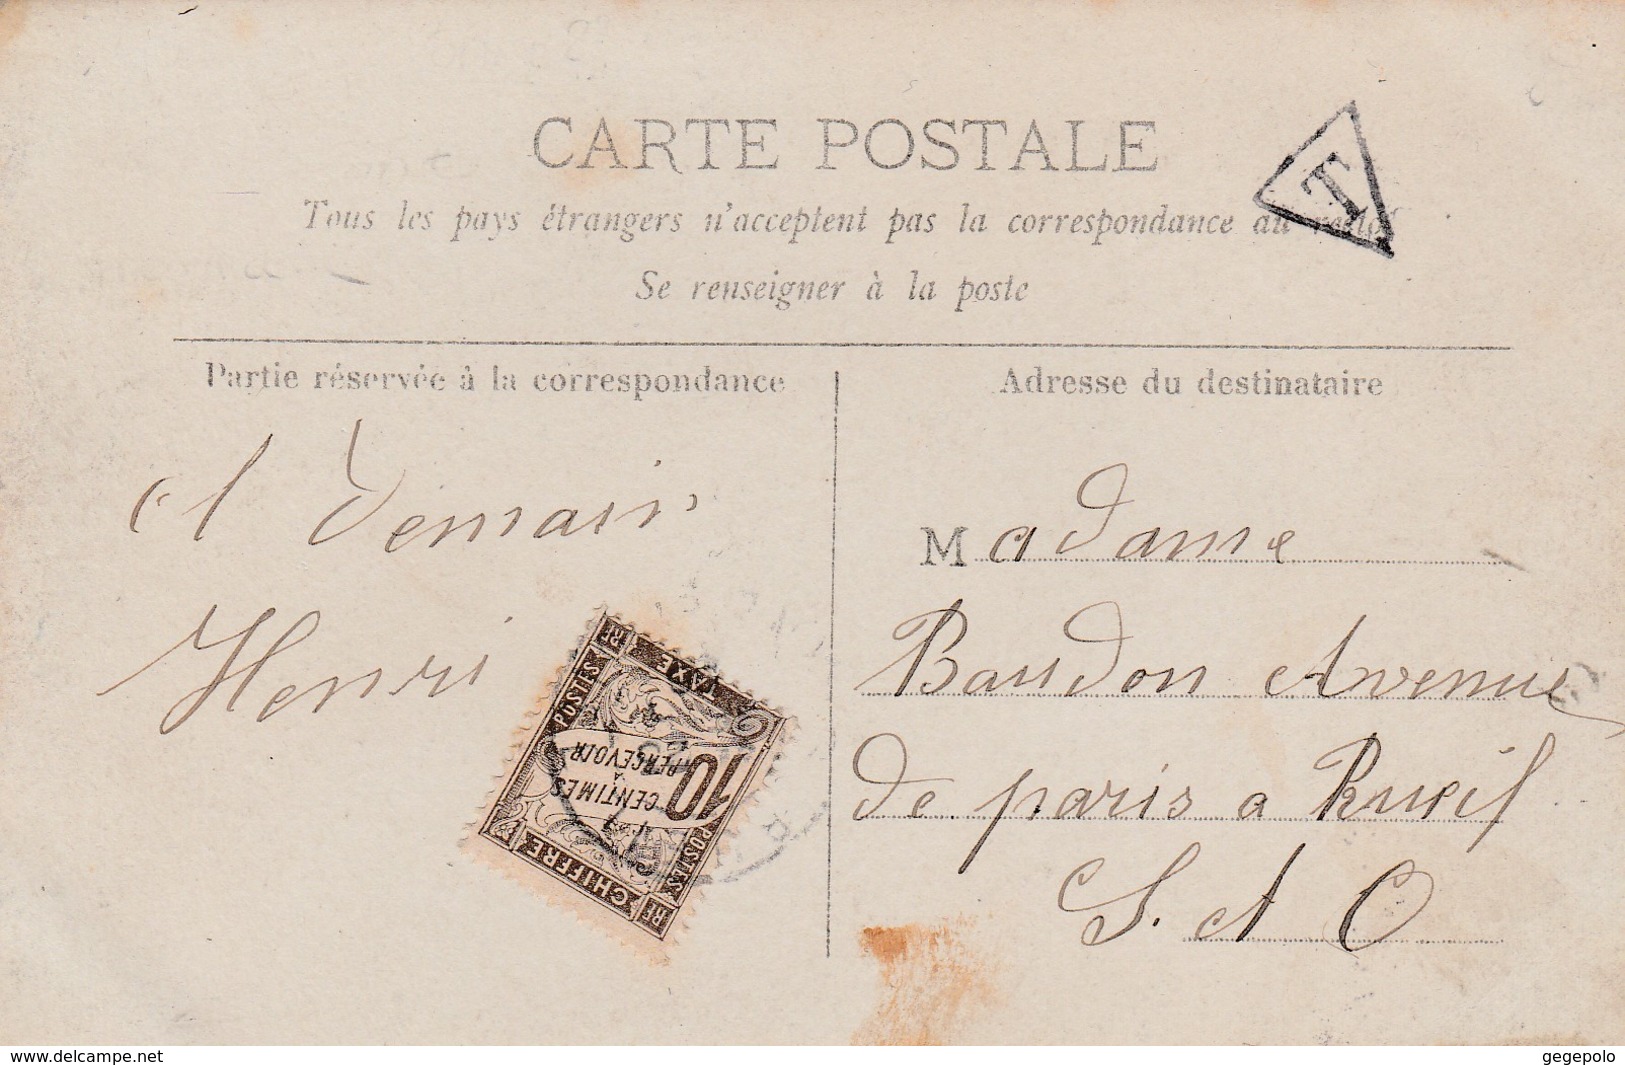 CARTE POSTALE
T
Tous les pays étrangers n'acceptent pas la correspondance au
Se renseigner à la poste
Partie réservée à la correspondance
Adresse du destinataire
A Demain
Henri
Madame
Baudon Avenue
de paris a Rueil
S. et O
RF
TAXE
RF
POSTES
10
CENTIMES
À
PERCEVOIR
POSTES
CHIFFRE
RF
www.delcampe.net
gegepolo